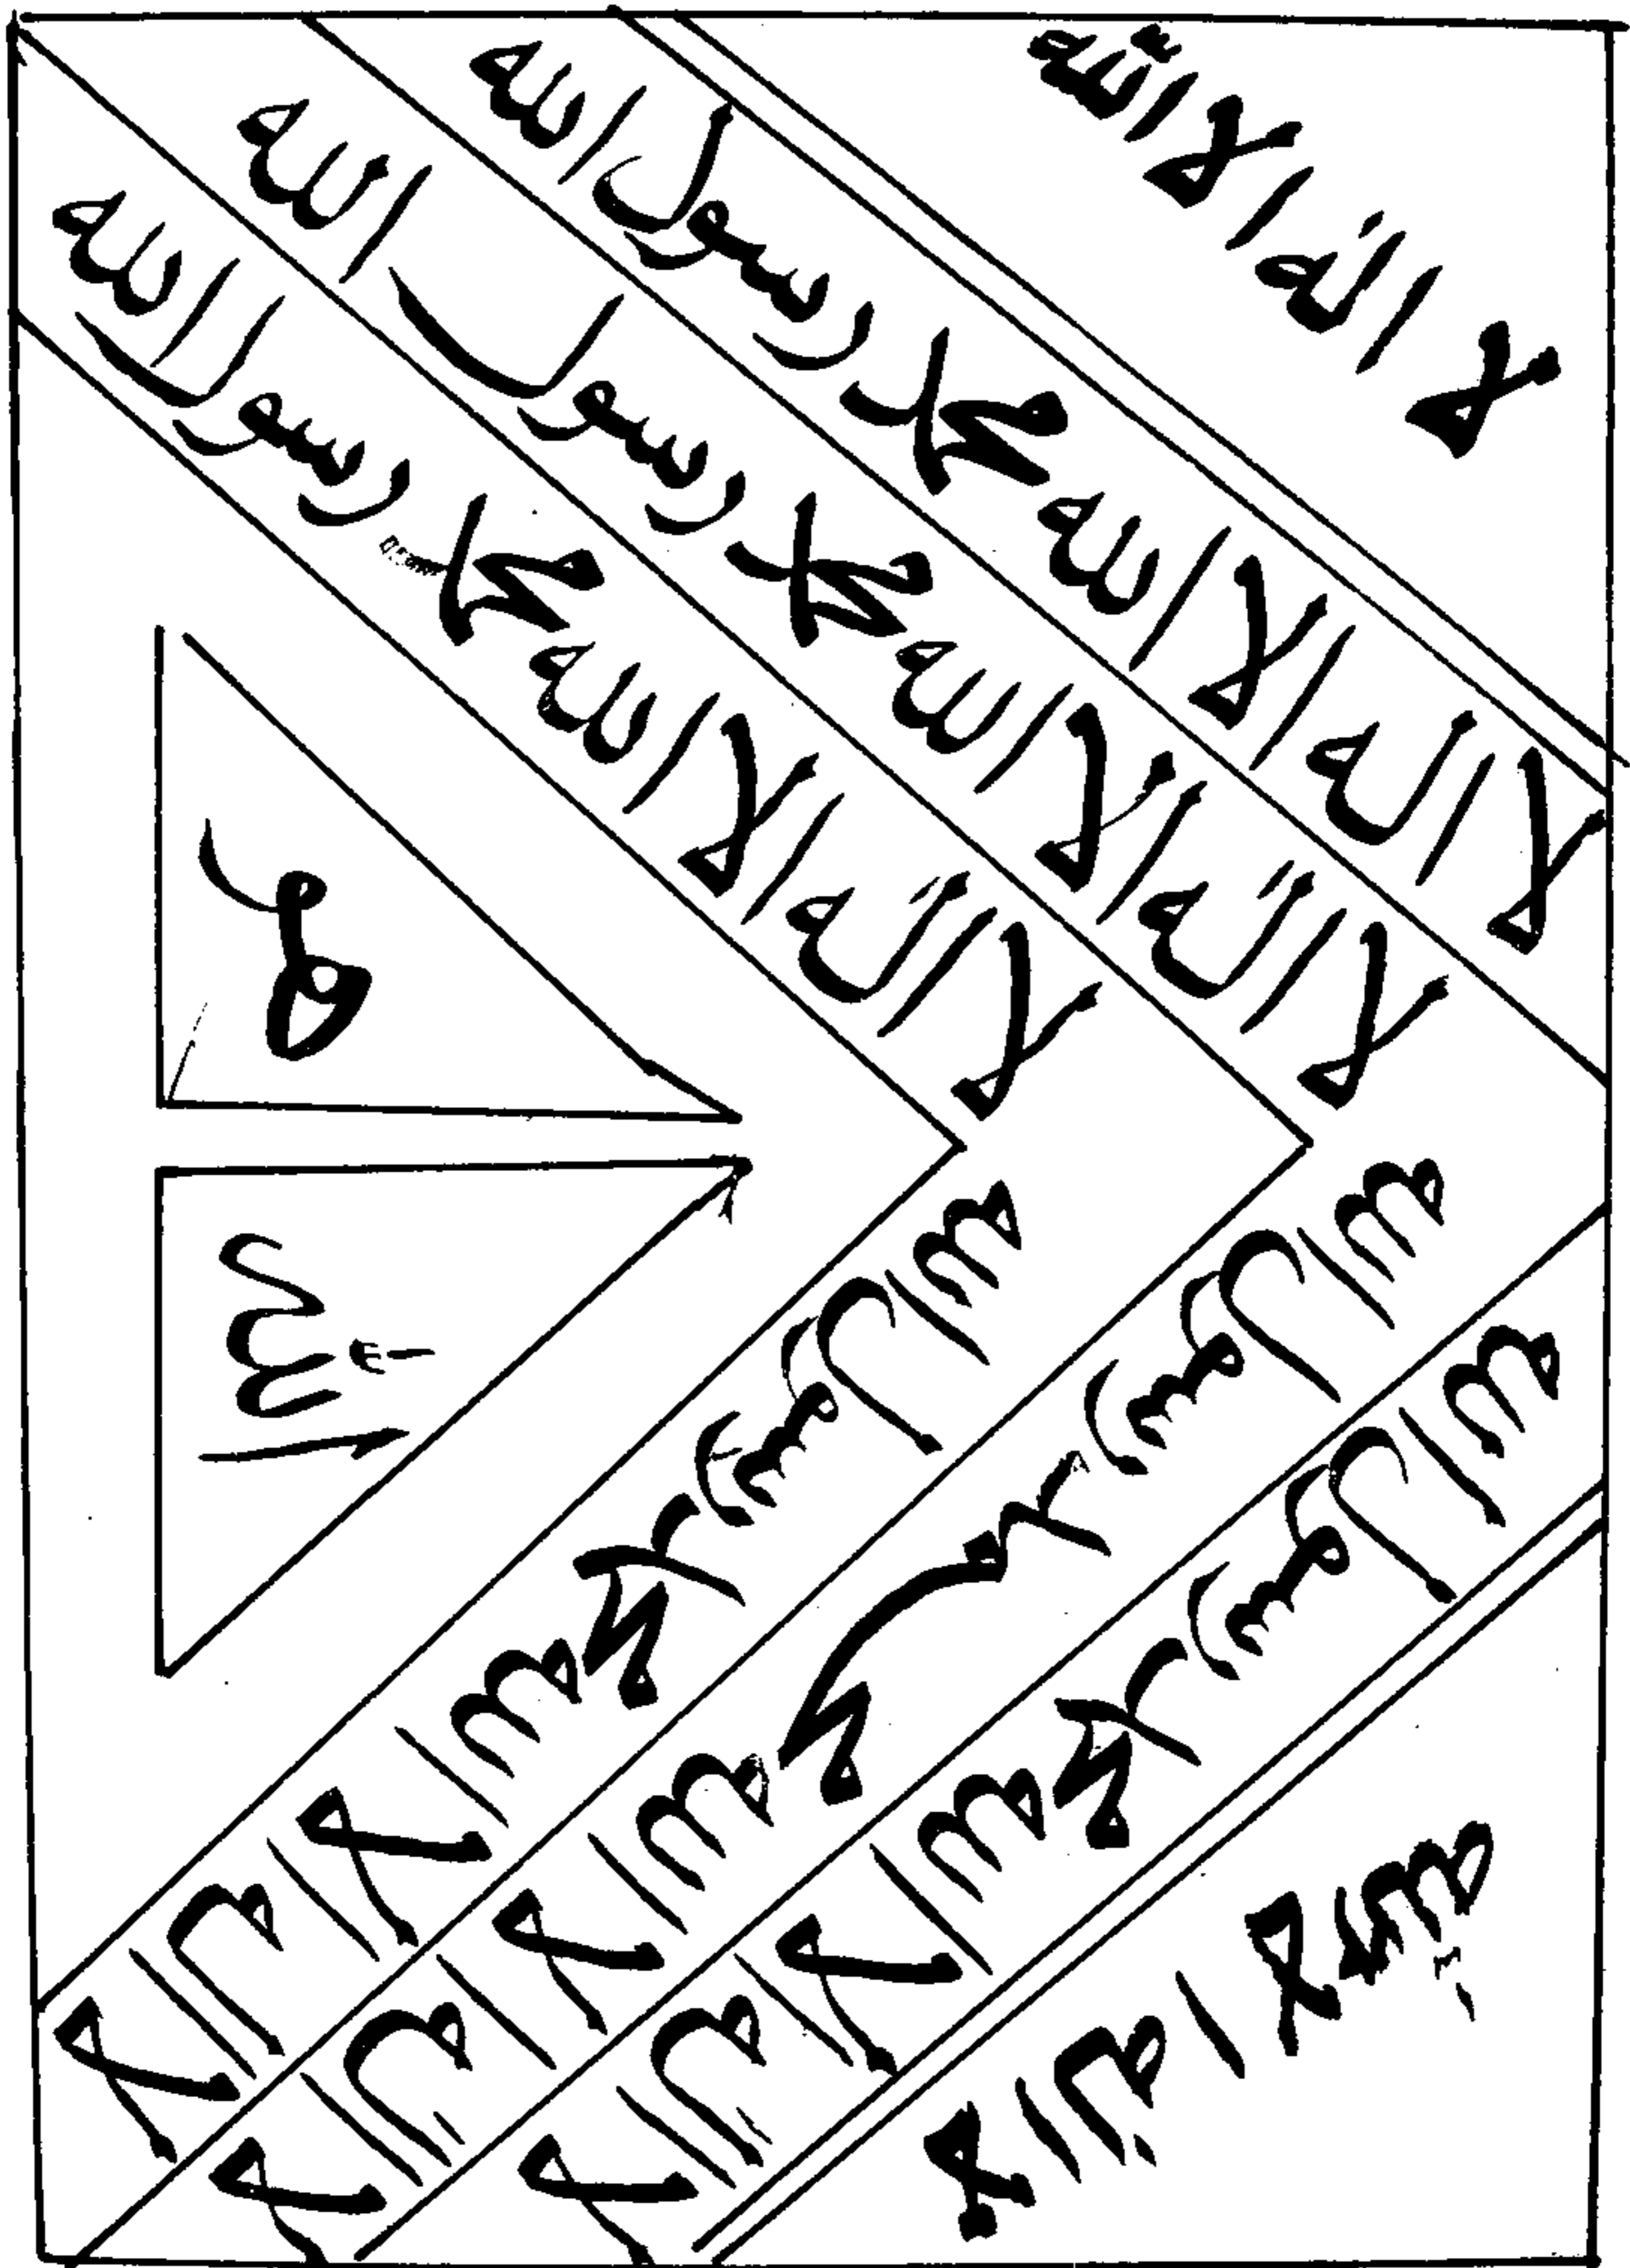 لا الٰه الا اللّٰه
لا اله الا الله محمد رسول الله
لا الٰه الا الله محمد رسول الله
لا الٰه الا الله محمد رسول الله
هو
اللّٰه
لا اله الا الله محمد رسول الله
لا الٰه الا الله محمد رسول الله
لا الٰه الا الله محمد رسول الله
لا الٰه الا اللّٰه